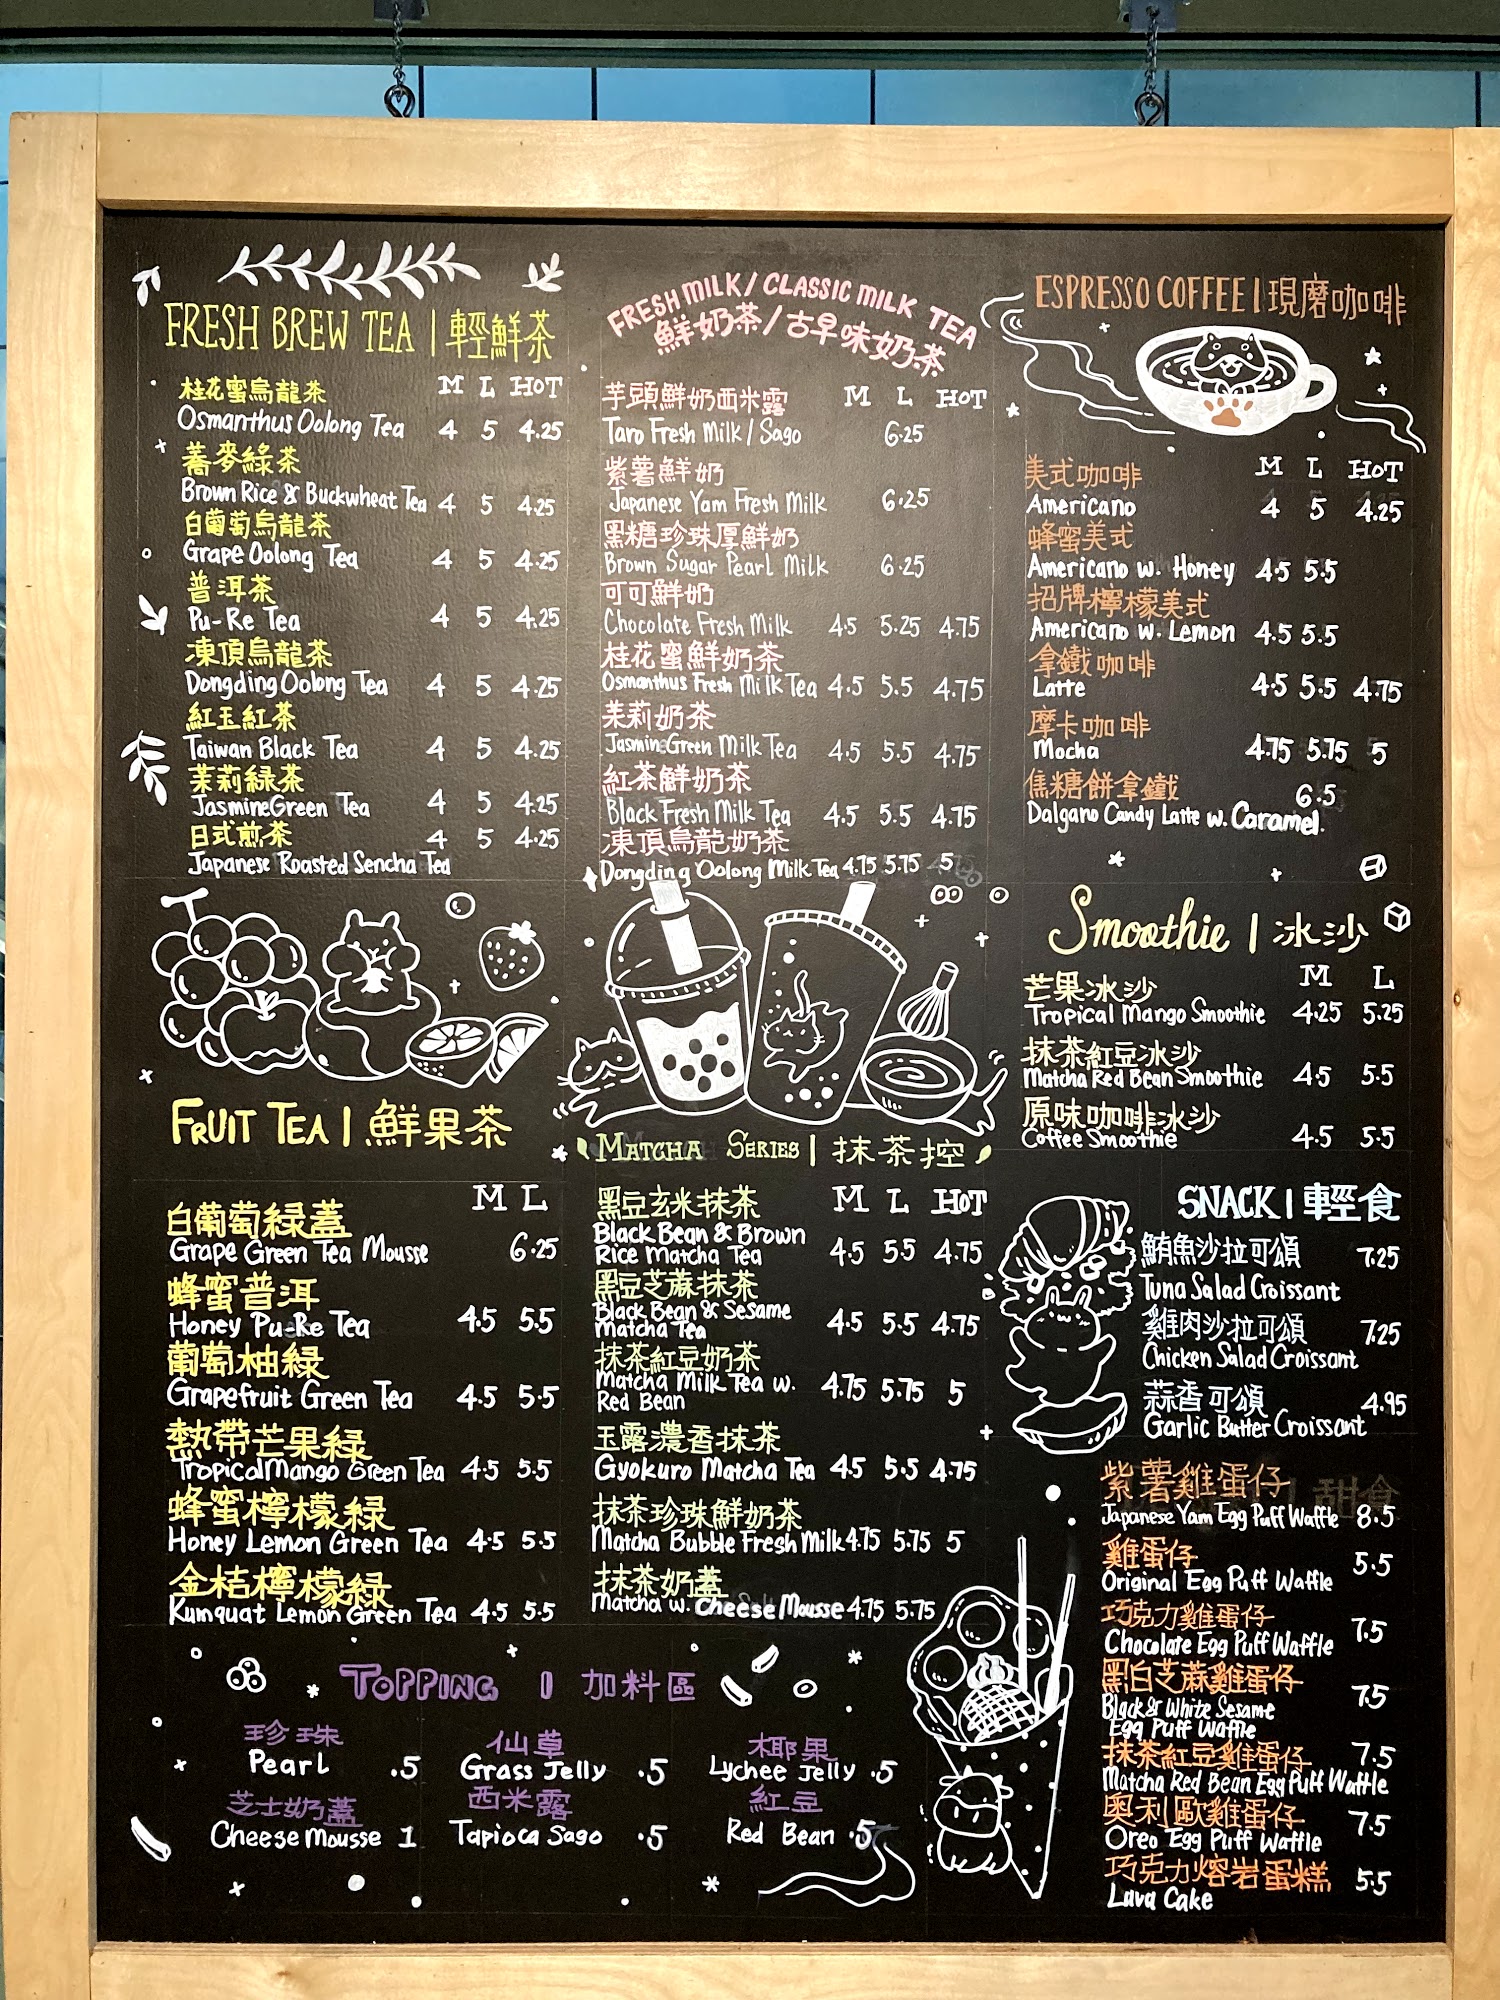 FRESH BREW TEA | 輕鮮茶
M L HOT
桂花蜜烏龍茶
Osmanthus Oolong Tea 4 5 4.25
蕎麥綠茶
Brown Rice & Buckwheat Tea 4 5 4.25
白葡萄烏龍茶
Grape Oolong Tea 4 5 4.25
普洱茶
Pu-Re Tea 4 5 4.25
凍頂烏龍茶
Dongding Oolong Tea 4 5 4.25
紅玉紅茶
Taiwan Black Tea 4 5 4.25
茉莉綠茶
Jasmine Green Tea 4 5 4.25
日式煎茶 4 5 4.25
Japanese Roasted Sencha Tea
FRUIT TEA | 鮮果茶
M L
白葡萄綠蓋
Grape Green Tea Mousse 6.25
蜂蜜普洱
Honey Pu-Re Tea 4.5 5.5
葡萄柚綠
Grapefruit Green Tea 4.5 5.5
熱帶芒果綠
Tropical Mango Green Tea 4.5 5.5
蜂蜜檸檬綠
Honey Lemon Green Tea 4.5 5.5
金桔檸檬綠
Kumquat Lemon Green Tea 4.5 5.5
FRESH MILK / CLASSIC MILK TEA
鮮奶茶/古早味奶茶
M L HOT
芋頭鮮奶西米露
Taro Fresh Milk / Sago 6.25
紫薯鮮奶
Japanese Yam Fresh Milk 6.25
黑糖珍珠厚鮮奶
Brown Sugar Pearl Milk 6.25
可可鮮奶
Chocolate Fresh Milk 4.5 5.25 4.75
桂花蜜鮮奶茶
Osmanthus Fresh Milk Tea 4.5 5.5 4.75
茉莉奶茶
Jasmine Green Milk Tea 4.5 5.5 4.75
紅茶鮮奶茶
Black Fresh Milk Tea 4.5 5.5 4.75
凍頂烏龍奶茶
Dongding Oolong Milk Tea 4.75 5.75 5
MATCHA SERIES | 抹茶控
M L HOT
黑豆玄米抹茶
Black Bean & Brown
Rice Matcha Tea 4.5 5.5 4.75
黑豆芝蔴抹茶
Black Bean & Sesame
Matcha Tea 4.5 5.5 4.75
抹茶紅豆奶茶
Matcha Milk Tea w. 4.75 5.75 5
Red Bean
玉露濃香抹茶
Gyokuro Matcha Tea 4.5 5.5 4.75
抹茶珍珠鮮奶茶
Matcha Bubble Fresh Milk 4.75 5.75 5
抹茶奶蓋
Matcha w. Cheese Mousse 4.75 5.75
TOPPING | 加料區
珍珠
Pearl .5
仙草
Grass Jelly .5
椰果
Lychee Jelly .5
芝士奶蓋
Cheese Mousse 1
西米露
Tapioca Sago .5
紅豆
Red Bean .5
ESPRESSO COFFEE | 現磨咖啡
M L HOT
美式咖啡
Americano 4 5 4.25
蜂蜜美式
Americano w. Honey 4.5 5.5
招牌檸檬美式
Americano w. Lemon 4.5 5.5
拿鐵咖啡
Latte 4.5 5.5 4.75
摩卡咖啡
Mocha 4.75 5.75 5
焦糖餅拿鐵 6.5
Dalgano Candy Latte w. Caramel.
Smoothie | 冰沙
M L
芒果冰沙
Tropical Mango Smoothie 4.25 5.25
抹茶紅豆冰沙
Matcha Red Bean Smoothie 4.5 5.5
原味咖啡冰沙
Coffee Smoothie 4.5 5.5
SNACK | 輕食
鮪魚沙拉可頌 7.25
Tuna Salad Croissant
雞肉沙拉可頌 7.25
Chicken Salad Croissant
蒜香可頌 4.95
Garlic Butter Croissant
紫薯雞蛋仔
Japanese Yam Egg Puff Waffle 8.5
雞蛋仔 5.5
Original Egg Puff Waffle
巧克力雞蛋仔 7.5
Chocolate Egg Puff Waffle
黑白芝蔴雞蛋仔 7.5
Black & White Sesame
Egg Puff Waffle
抹茶紅豆雞蛋仔 7.5
Matcha Red Bean Egg Puff Waffle
奧利歐雞蛋仔 7.5
Oreo Egg Puff Waffle
巧克力熔岩蛋糕 5.5
Lava Cake